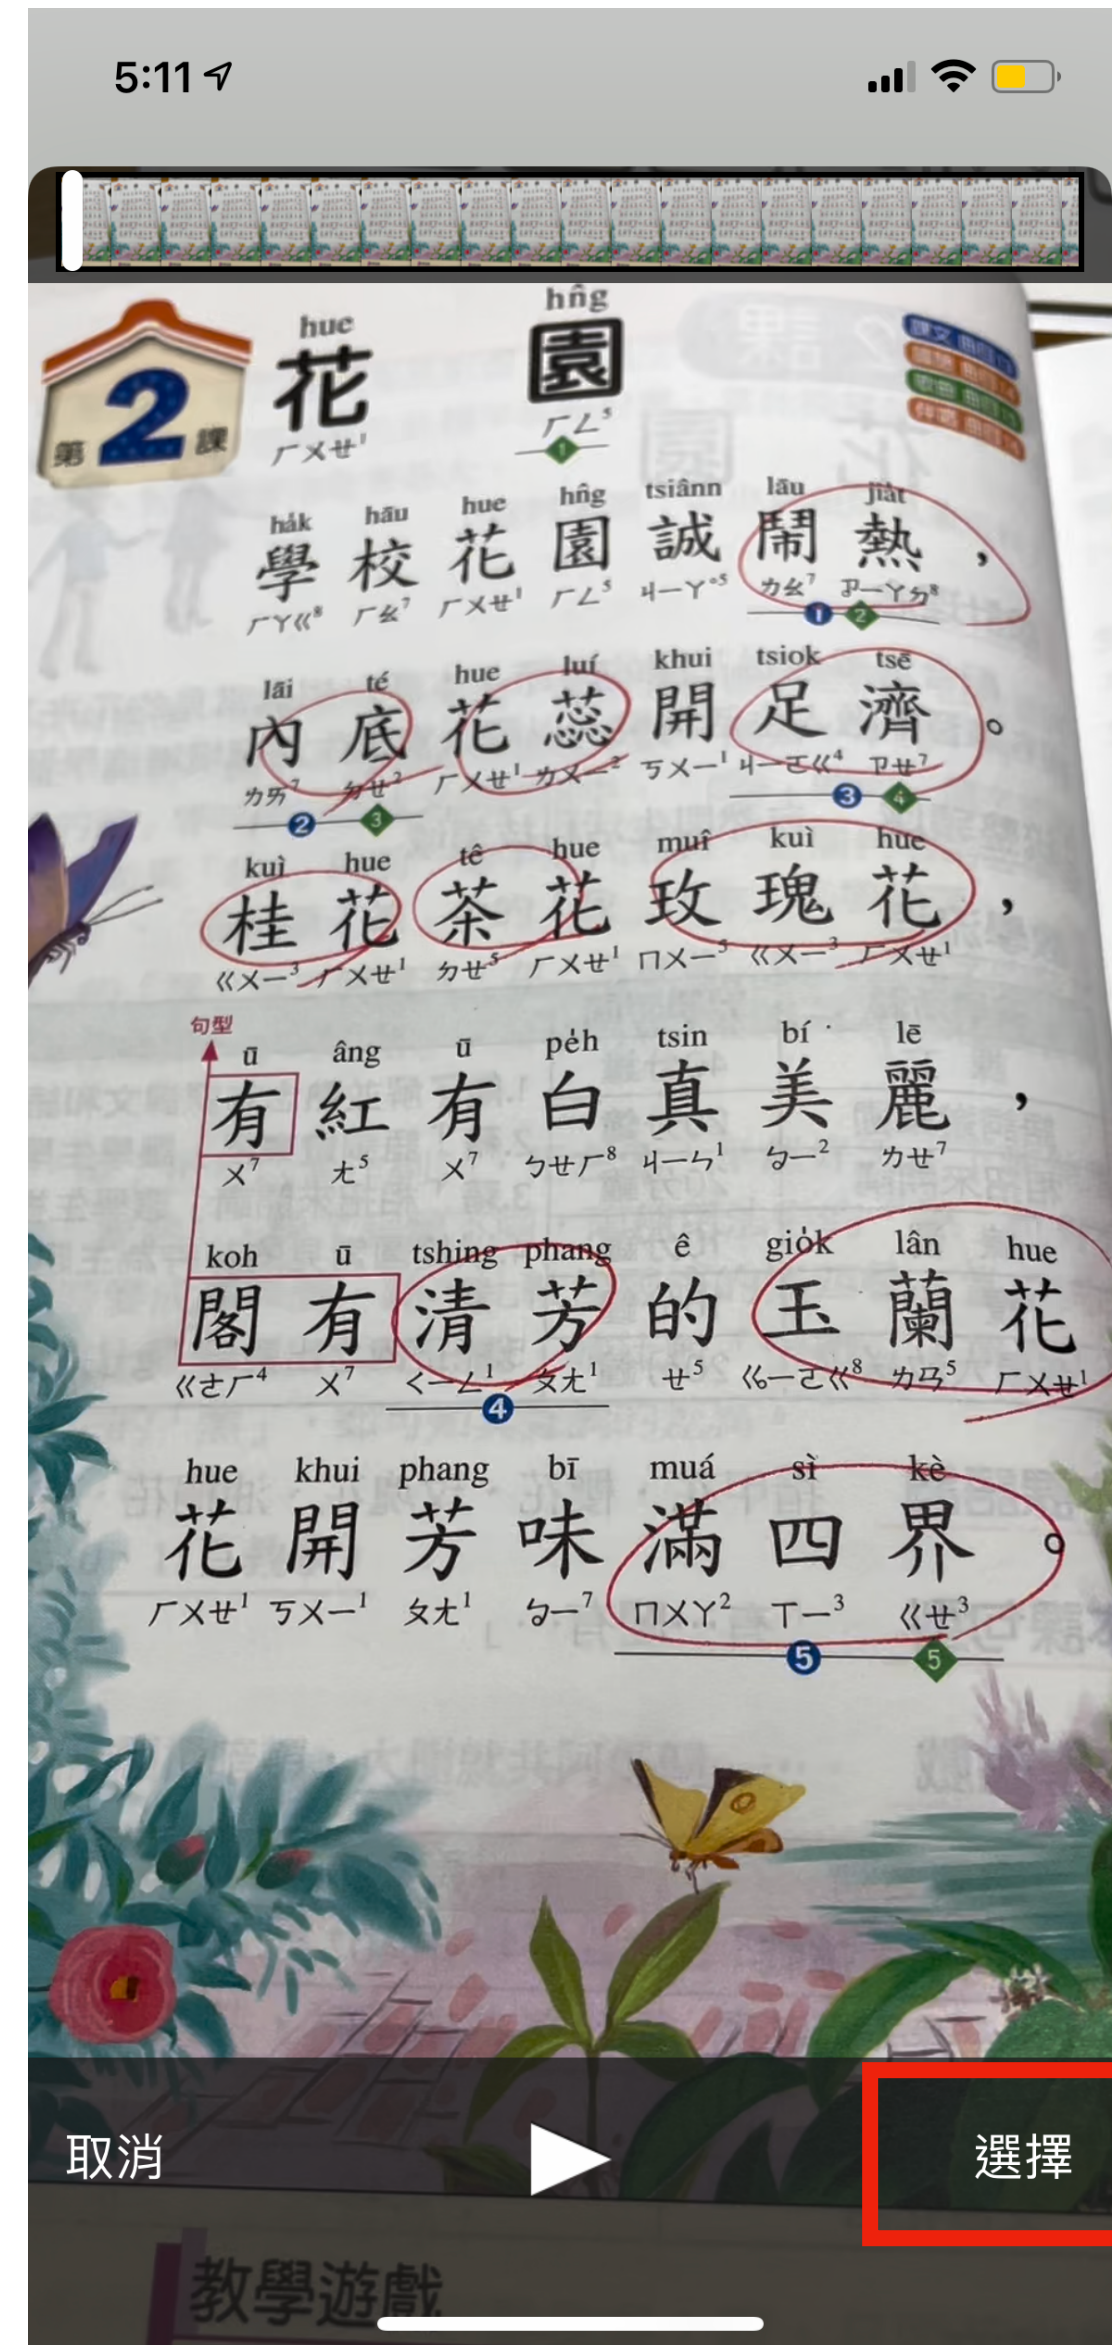 5:11
hue hn̂g
第 2 課 花 園
ㄏㄨㄝ¹ ㄏㄥ⁵
1
ha̍k hāu hue hn̂g tsiânn lāu jia̍t
學 校 花 園 誠 鬧 熱 ，
ㄏㄚㄍ⁸ ㄏㄠ⁷ ㄏㄨㄝ¹ ㄏㄥ⁵ ㄐㄧㄚ°⁵ ㄌㄠ⁷ ㄗㄧㄚㄉ⁸
1 2
lāi té hue luí khui tsiok tsē
內 底 花 蕊 開 足 濟 。
ㄌㄞ⁷ ㄉㄝ² ㄏㄨㄝ¹ ㄌㄨㄧ² ㄎㄨㄧ¹ ㄐㄧㄛㄍ⁴ ㄗㄝ⁷
2 3 3 4
kuì hue tê hue muî kuì hue
桂 花 茶 花 玫 瑰 花 ，
ㄍㄨㄧ³ ㄏㄨㄝ¹ ㄉㄝ⁵ ㄏㄨㄝ¹ ㄇㄨㄧ⁵ ㄍㄨㄧ³ ㄏㄨㄝ¹
句型
ū âng ū pe̍h tsin bí lē
有 紅 有 白 真 美 麗 ，
ㄨ⁷ ㄤ⁵ ㄨ⁷ ㄅㄝㄏ⁸ ㄐㄧㄣ¹ ㄅㄧ² ㄌㄝ⁷
koh ū tshing phang ê gio̍k lân hue
閣 有 清 芳 的 玉 蘭 花
ㄍㄜㄏ⁴ ㄨ⁷ ㄑㄧㄥ¹ ㄆㄤ¹ ㄝ⁵ ㄍㄧㄛㄍ⁸ ㄌㄢ⁵ ㄏㄨㄝ¹
4
hue khui phang bī muá sì kè
花 開 芳 味 滿 四 界 。
ㄏㄨㄝ¹ ㄎㄨㄧ¹ ㄆㄤ¹ ㄅㄧ⁷ ㄇㄨㄚ² ㄒㄧ³ ㄍㄝ³
5 5
取消 選擇
教學遊戲